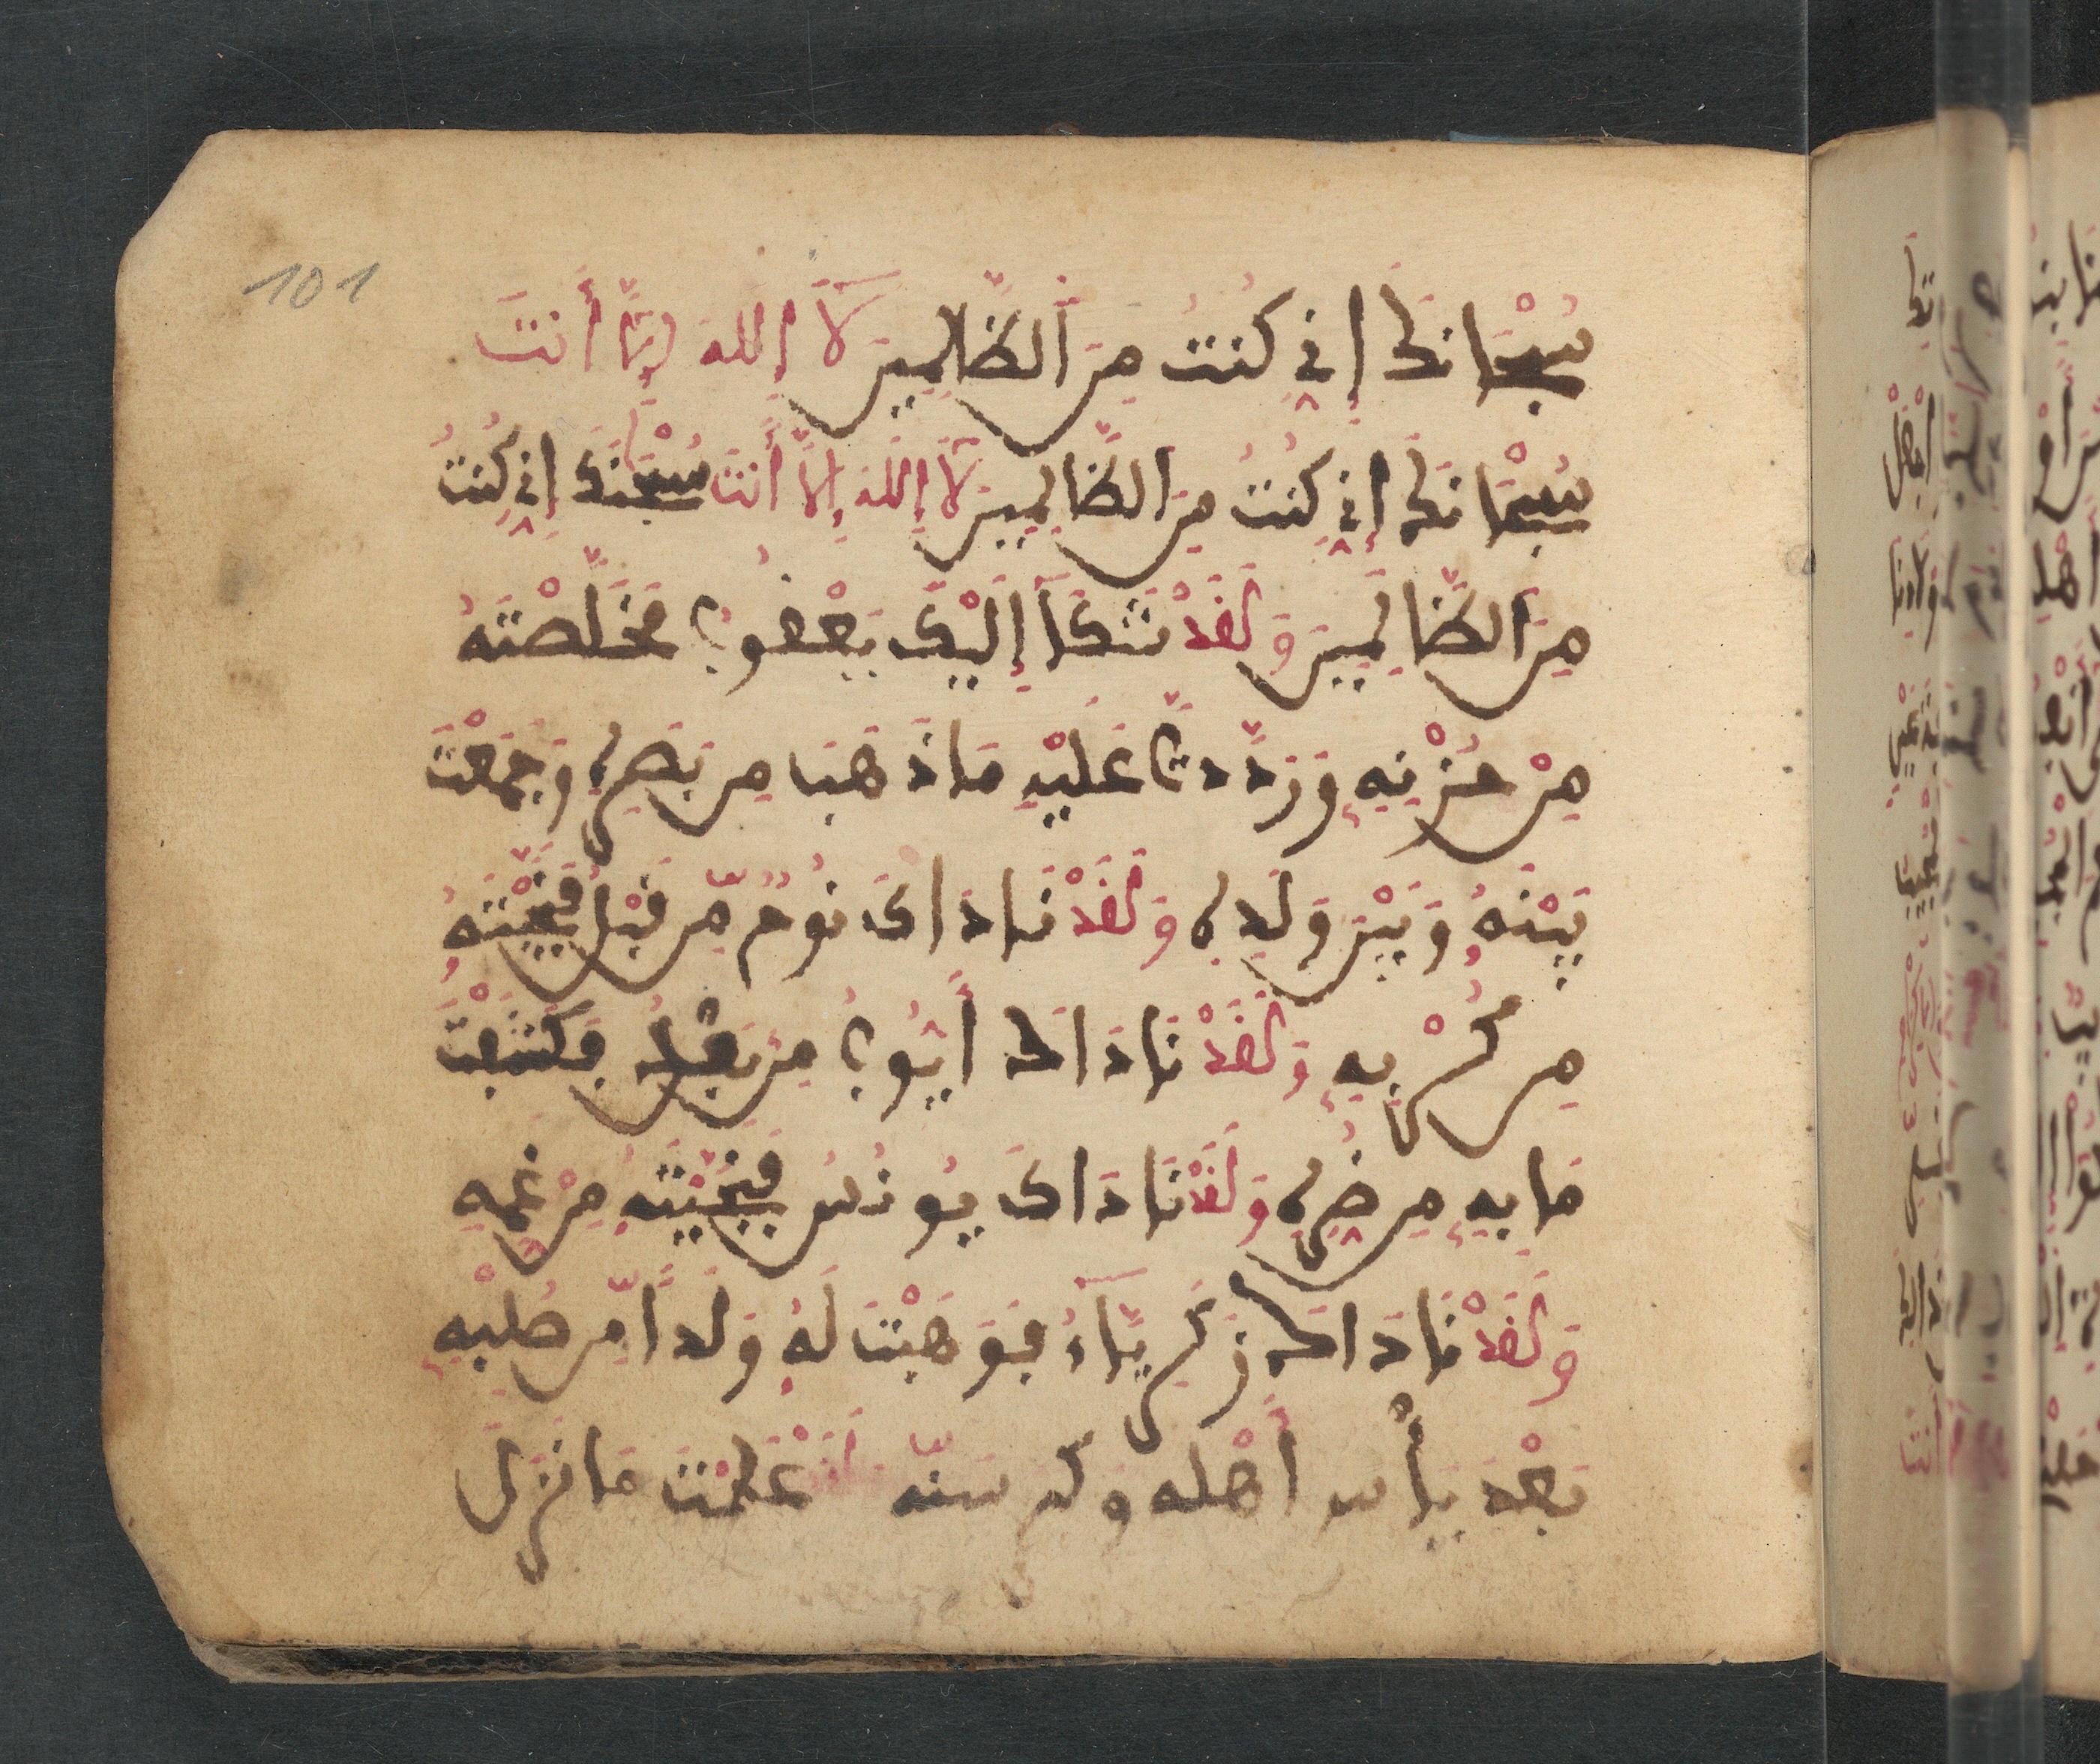 101
سُبْحَانَكَ إِنِّي كُنتُ مِنَ ٱلظَّالِمِينَ لَآ إِلَٰهَ إِلَّا أَنتَ
سُبْحَانَكَ إِنِّي كُنتُ مِنَ ٱلظَّالِمِينَ لَآ إِلَٰهَ إِلَّا أَنتَ سُبْحَٰنَكَ إِنِّي كُنتُ
مِنَ ٱلظَّالِمِينَ وَلَقَدْ شَكَآ إِلَيْكَ يَعْقُوبُ فَخَلَّصْتَهُ
مِنْ حُزْنِهِ وَرَدَدتَّ عَلَيْهِ مَا ذَهَبَ مِن بَصَرِهِ وَجَمَعْتَ
بَيْنَهُ وَبَيْنَ وَلَدِهِ وَلَقَدْ نَادَاكَ نُوحٌ مِّن قَبْلُ فَنَجَّيْتَهُ
مِن كَرْبِهِ وَلَقَدْ نَادَاكَ أَيُّوبُ مِن بَعْدُ فَكَشَفْتَ
مَا بِهِ مِن ضُرِّهِ وَلَقَدْ نَادَاكَ يُونُسُ فَنَجَّيْتَهُ مِنْ غَمِّهِ
وَلَقَدْ نَادَاكَ زَكَرِيَّآءُ فَوَهَبْتَ لَهُ وَلَدًا مِّن صُلْبِهِ
بَعْدَ يَأْسِ أَهْلِهِ وَكِبَرِ سِنِّهِ لَقَدْ عَلِمْتَ مَا نَزَلَ